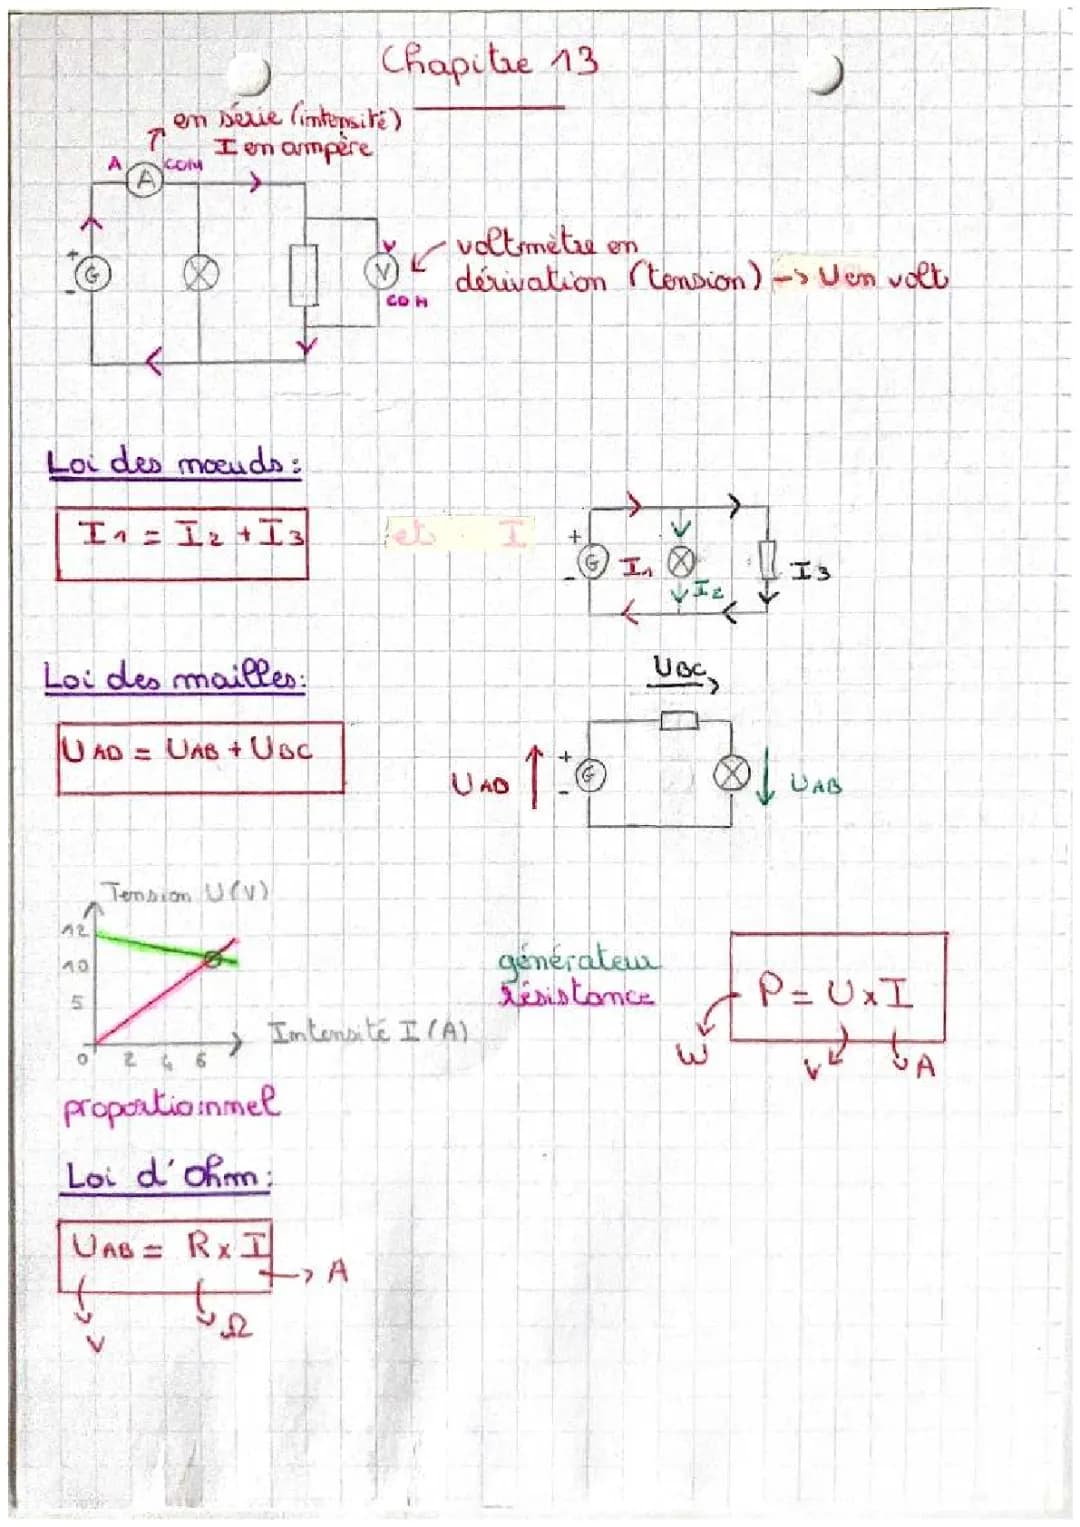 Chapitre 13
en série (intensité)
I en ampère
A
COM
A
G
V
V
COM
voltmètre en
dérivation (tension) -> U en volt
Loi des nœuds :
I1 = I2 + I3
et I
G
I1
I2
I3
Loi des mailles :
UAD = UAB + UBC
UBC
UAD
G
UAB
Tension U(V)
12
10
5
0 2 4 6
Intensité I (A)
générateur
résistance
P = U x I
W
V
A
proportionnel
Loi d'ohm :
UAB = R x I
A
V
Ω